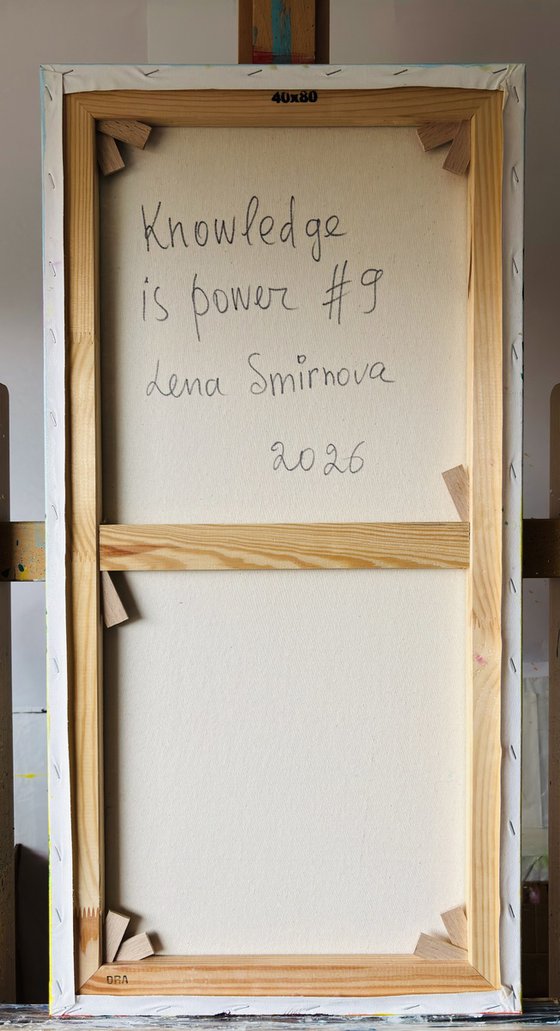 40x80
Knowledge
is power #9
Lena Smirnova
2026
DRA